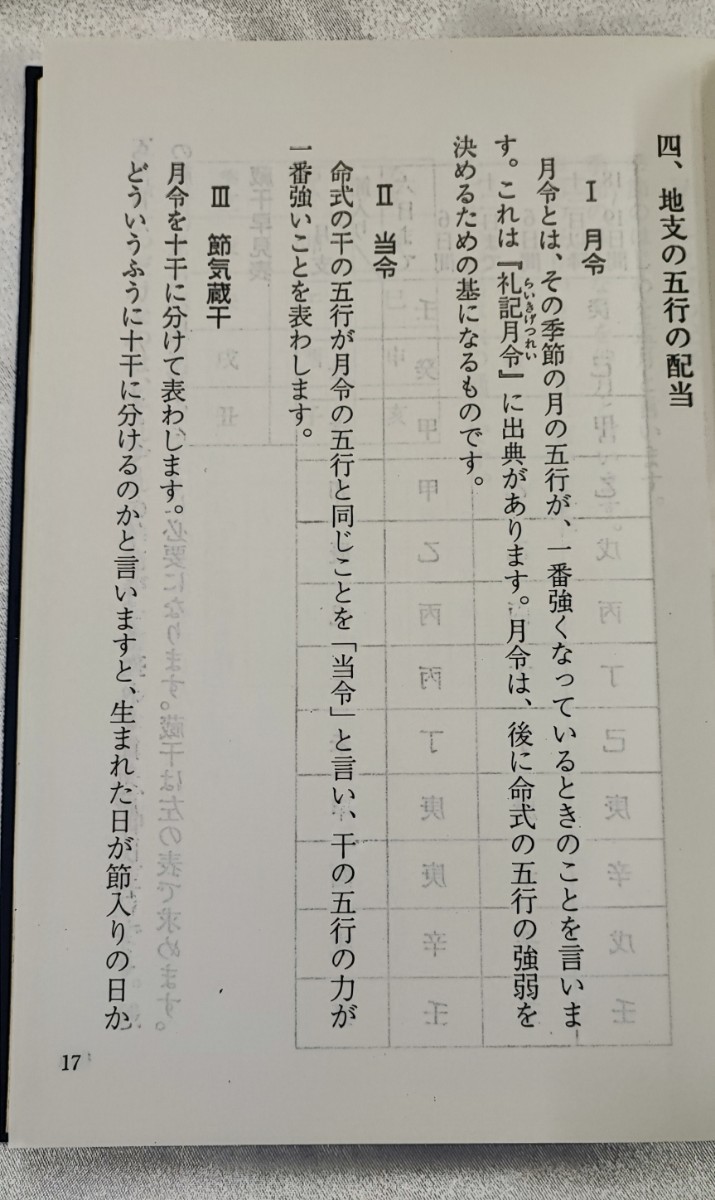 四、地支の五行の配当
Ⅰ 月令
月令とは、その季節の月の五行が、一番強くなっているときのことを言いま
す。これは『礼記月令』に出典があります。月令は、後に命式の五行の強弱を
らいきげつれい
決めるための基になるものです。
Ⅱ 当令
命式の干の五行が月令の五行と同じことを「当令」と言い、干の五行の力が
一番強いことを表わします。
Ⅲ 節気蔵干
月令を十干に分けて表わします。
どういうふうに十干に分けるのかと言いますと、生まれた日が節入りの日か
17